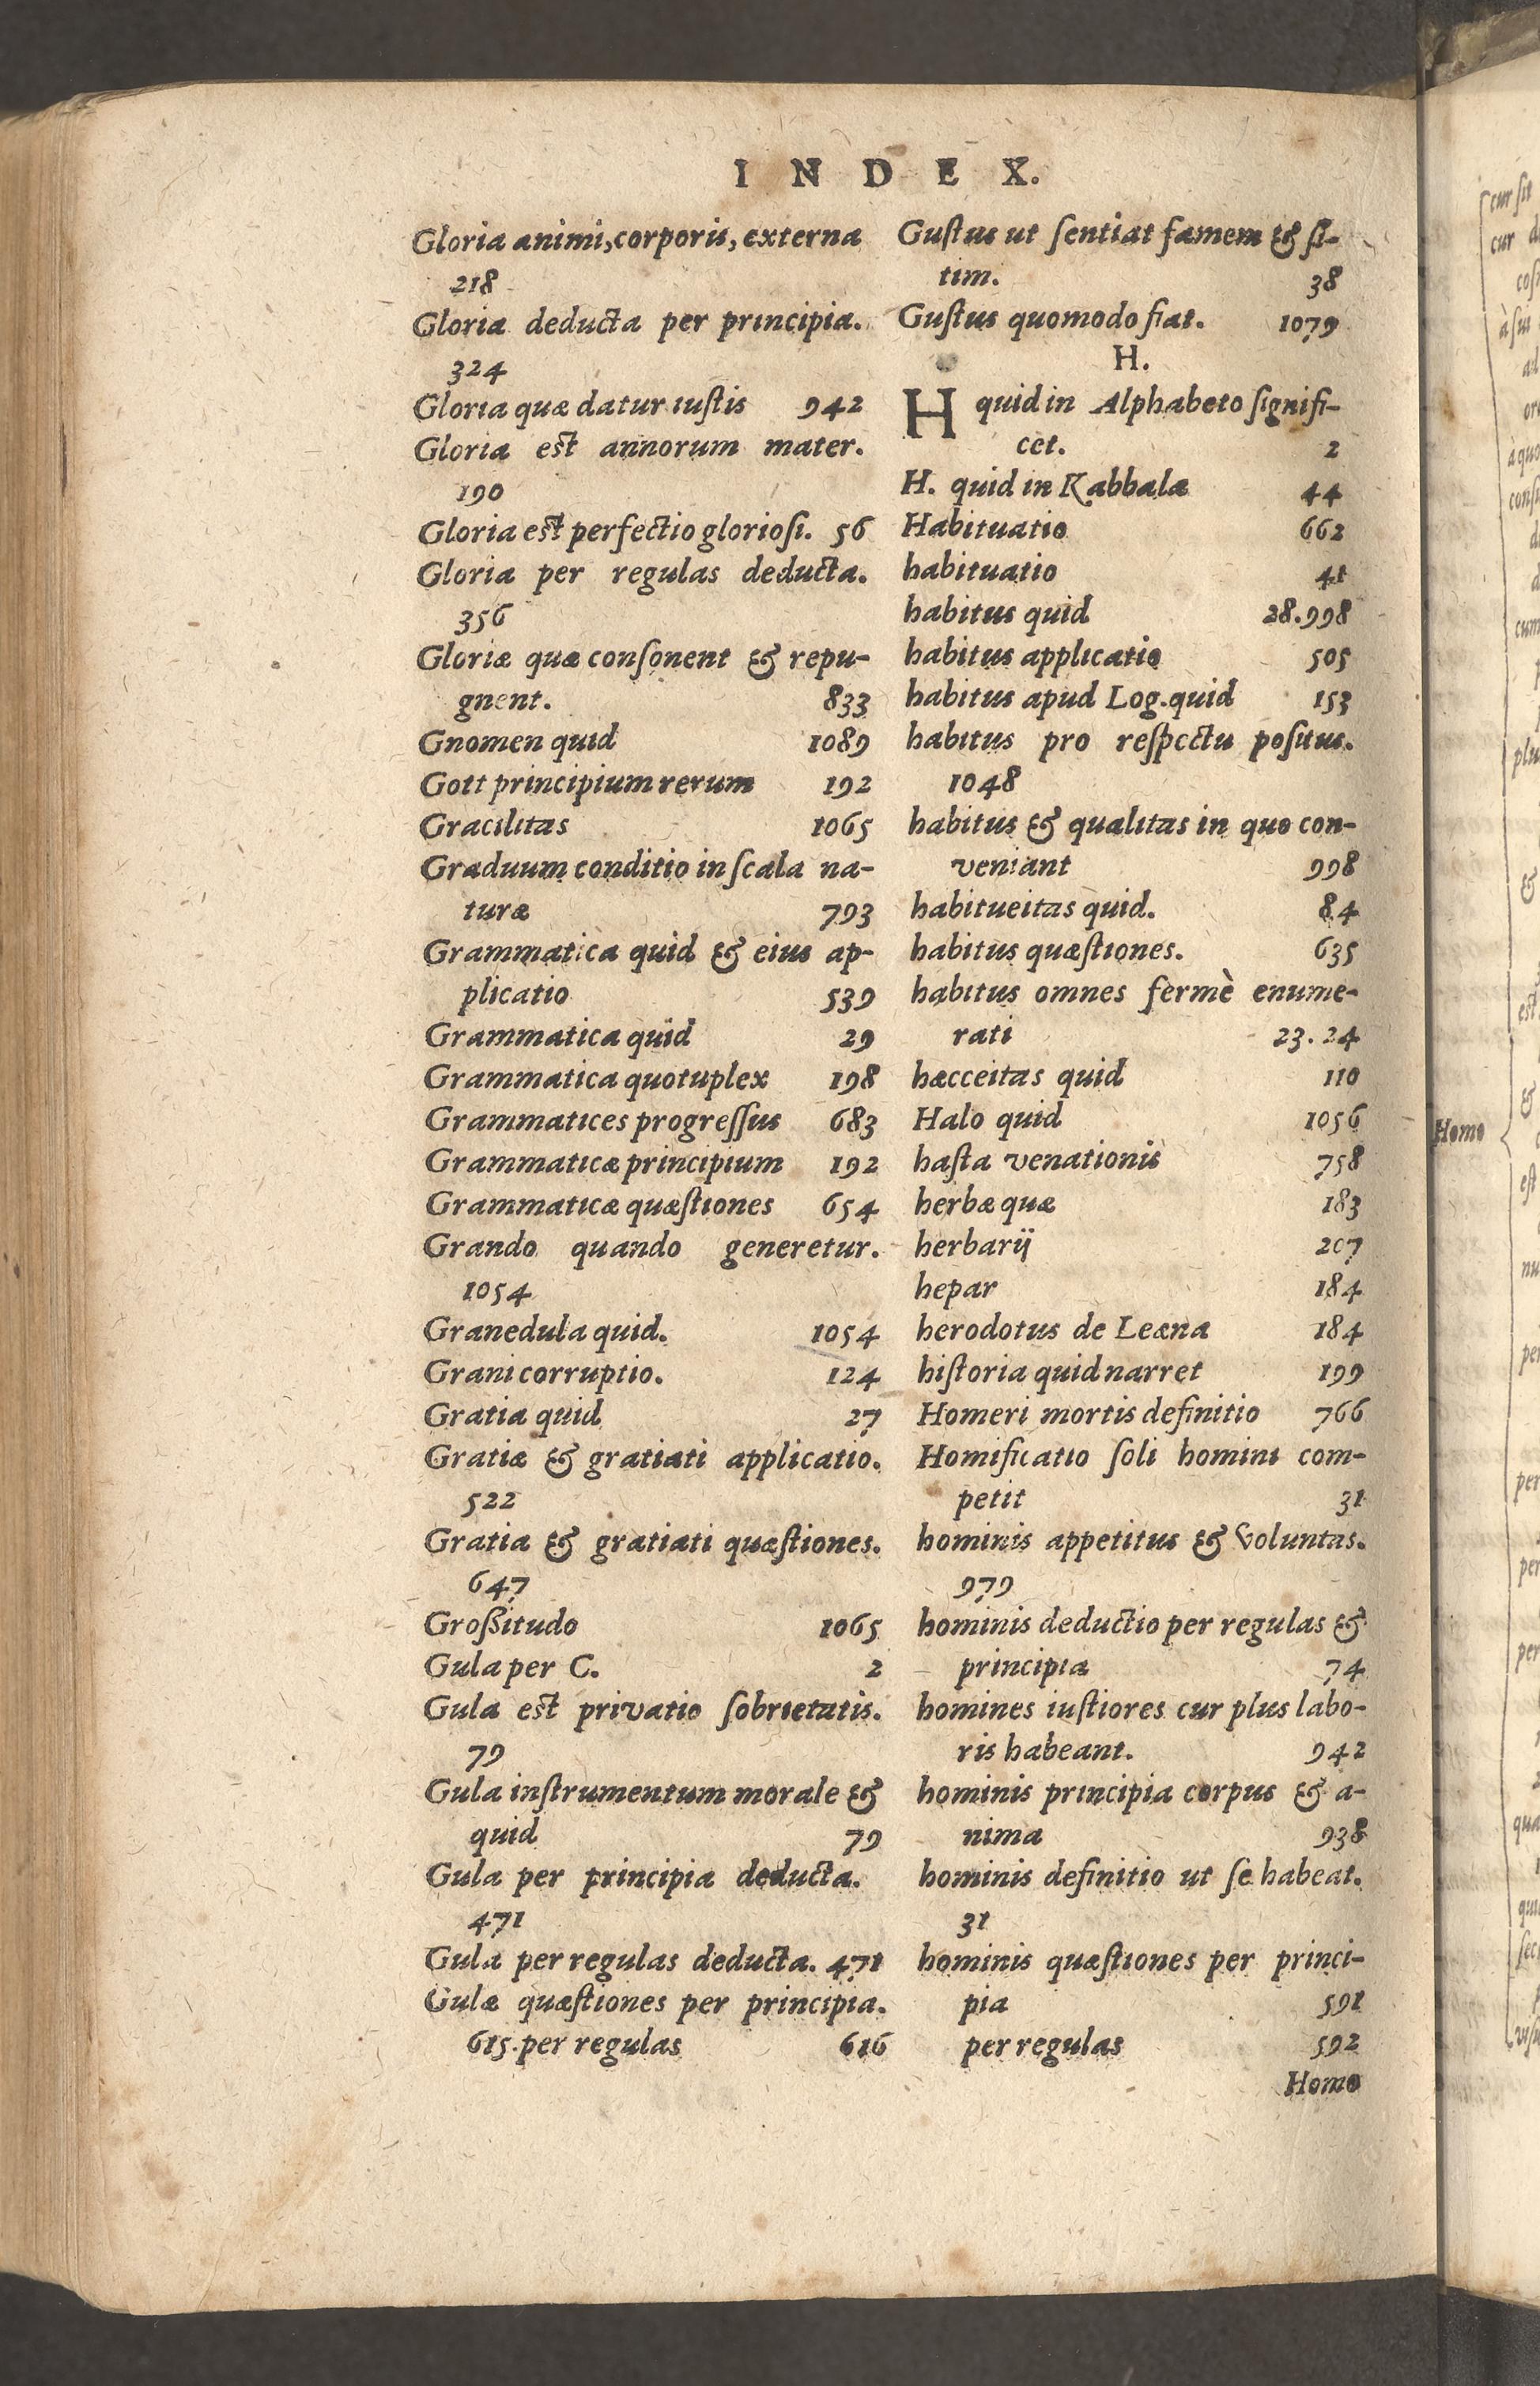 INDEX.
Gloria animi, corporis, externa
218
Gloria deducta per principia.
324
Gloria quæ datur iustis 942
Gloria est annorum mater.
190
Gloria est perfectio gloriosi. 56
Gloria per regulas deducta.
356
Gloriæ quæ consonent & repu-
gnent. 833
Gnomen quid 1089
Gott principium rerum 192
Gracilitas 1065
Graduum conditio in scala na-
turæ 793
Grammatica quid & eius ap-
plicatio 539
Grammatica quid 29
Grammatica quotuplex 198
Grammatices progressus 683
Grammaticæ principium 192
Grammaticæ quæstiones 654
Grando quando generetur.
1054
Granedula quid. 1054
Grani corruptio. 124
Gratia quid 27
Gratiæ & gratiati applicatio.
522
Gratia & gratiati quæstiones.
647
Großitudo 1065
Gula per C. 2
Gula est privatio sobrietatis.
79
Gula instrumentum morale &
quid 79
Gula per principia deducta.
471
Gula per regulas deducta. 471
Gulæ quæstiones per principia.
615. per regulas 616
Gustus ut sentiat famem & si-
tim. 38
Gustus quomodo fiat. 1079
H.
H quid in Alphabeto signifi-
cet. 2
H. quid in Kabbala 44
Habituatio 662
habituatio 41
habitus quid 28.998
habitus applicatio 505
habitus apud Log. quid 153
habitus pro respectu positus.
1048
habitus & qualitas in quo con-
veniant 998
habitueitas quid. 84
habitus quæstiones. 635
habitus omnes fermè enume-
rati 23.24
hæcceitas quid 110
Halo quid 1056
hasta venationis 758
herbæ quæ 183
herbarij 207
hepar 184
herodotus de Leæna 184
historia quid narret 199
Homeri mortis definitio 766
Homificatio soli homini com-
petit 31
hominis appetitus & voluntas.
979
hominis deductio per regulas &
principia 74
homines iustiores cur plus labo-
ris habeant. 942
hominis principia corpus & a-
nima 938
hominis definitio ut se habeat.
31
hominis quæstiones per princi-
pia 591
per regulas 592
Homo
Homo